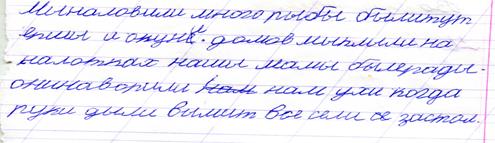 Миналовили много рыбы былитут
ерши и окуне. домов мыплили на
налотках наши мамы былеради.
онинаворили нам ухи когда
руки дыли вимит все сели се застол.